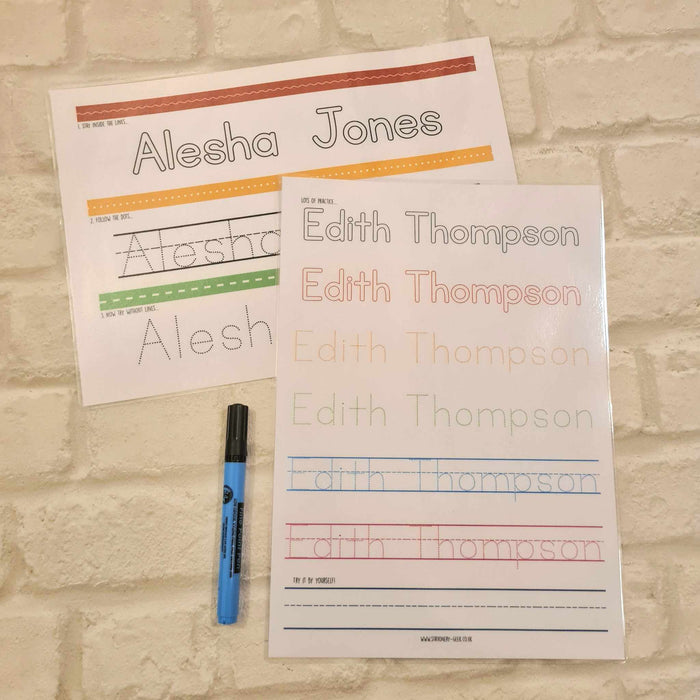 1. STAY INSIDE THE LINES...
Alesha Jones
2. FOLLOW THE DOTS...
Alesha
3. NOW TRY WITHOUT LINES...
Alesh
LOTS OF PRACTICE...
Edith Thompson
Edith Thompson
Edith Thompson
Edith Thompson
Edith Thompson
Edith Thompson
TRY IT BY YOURSELF!
WWW.STATIONERY-GEEK.CO.UK